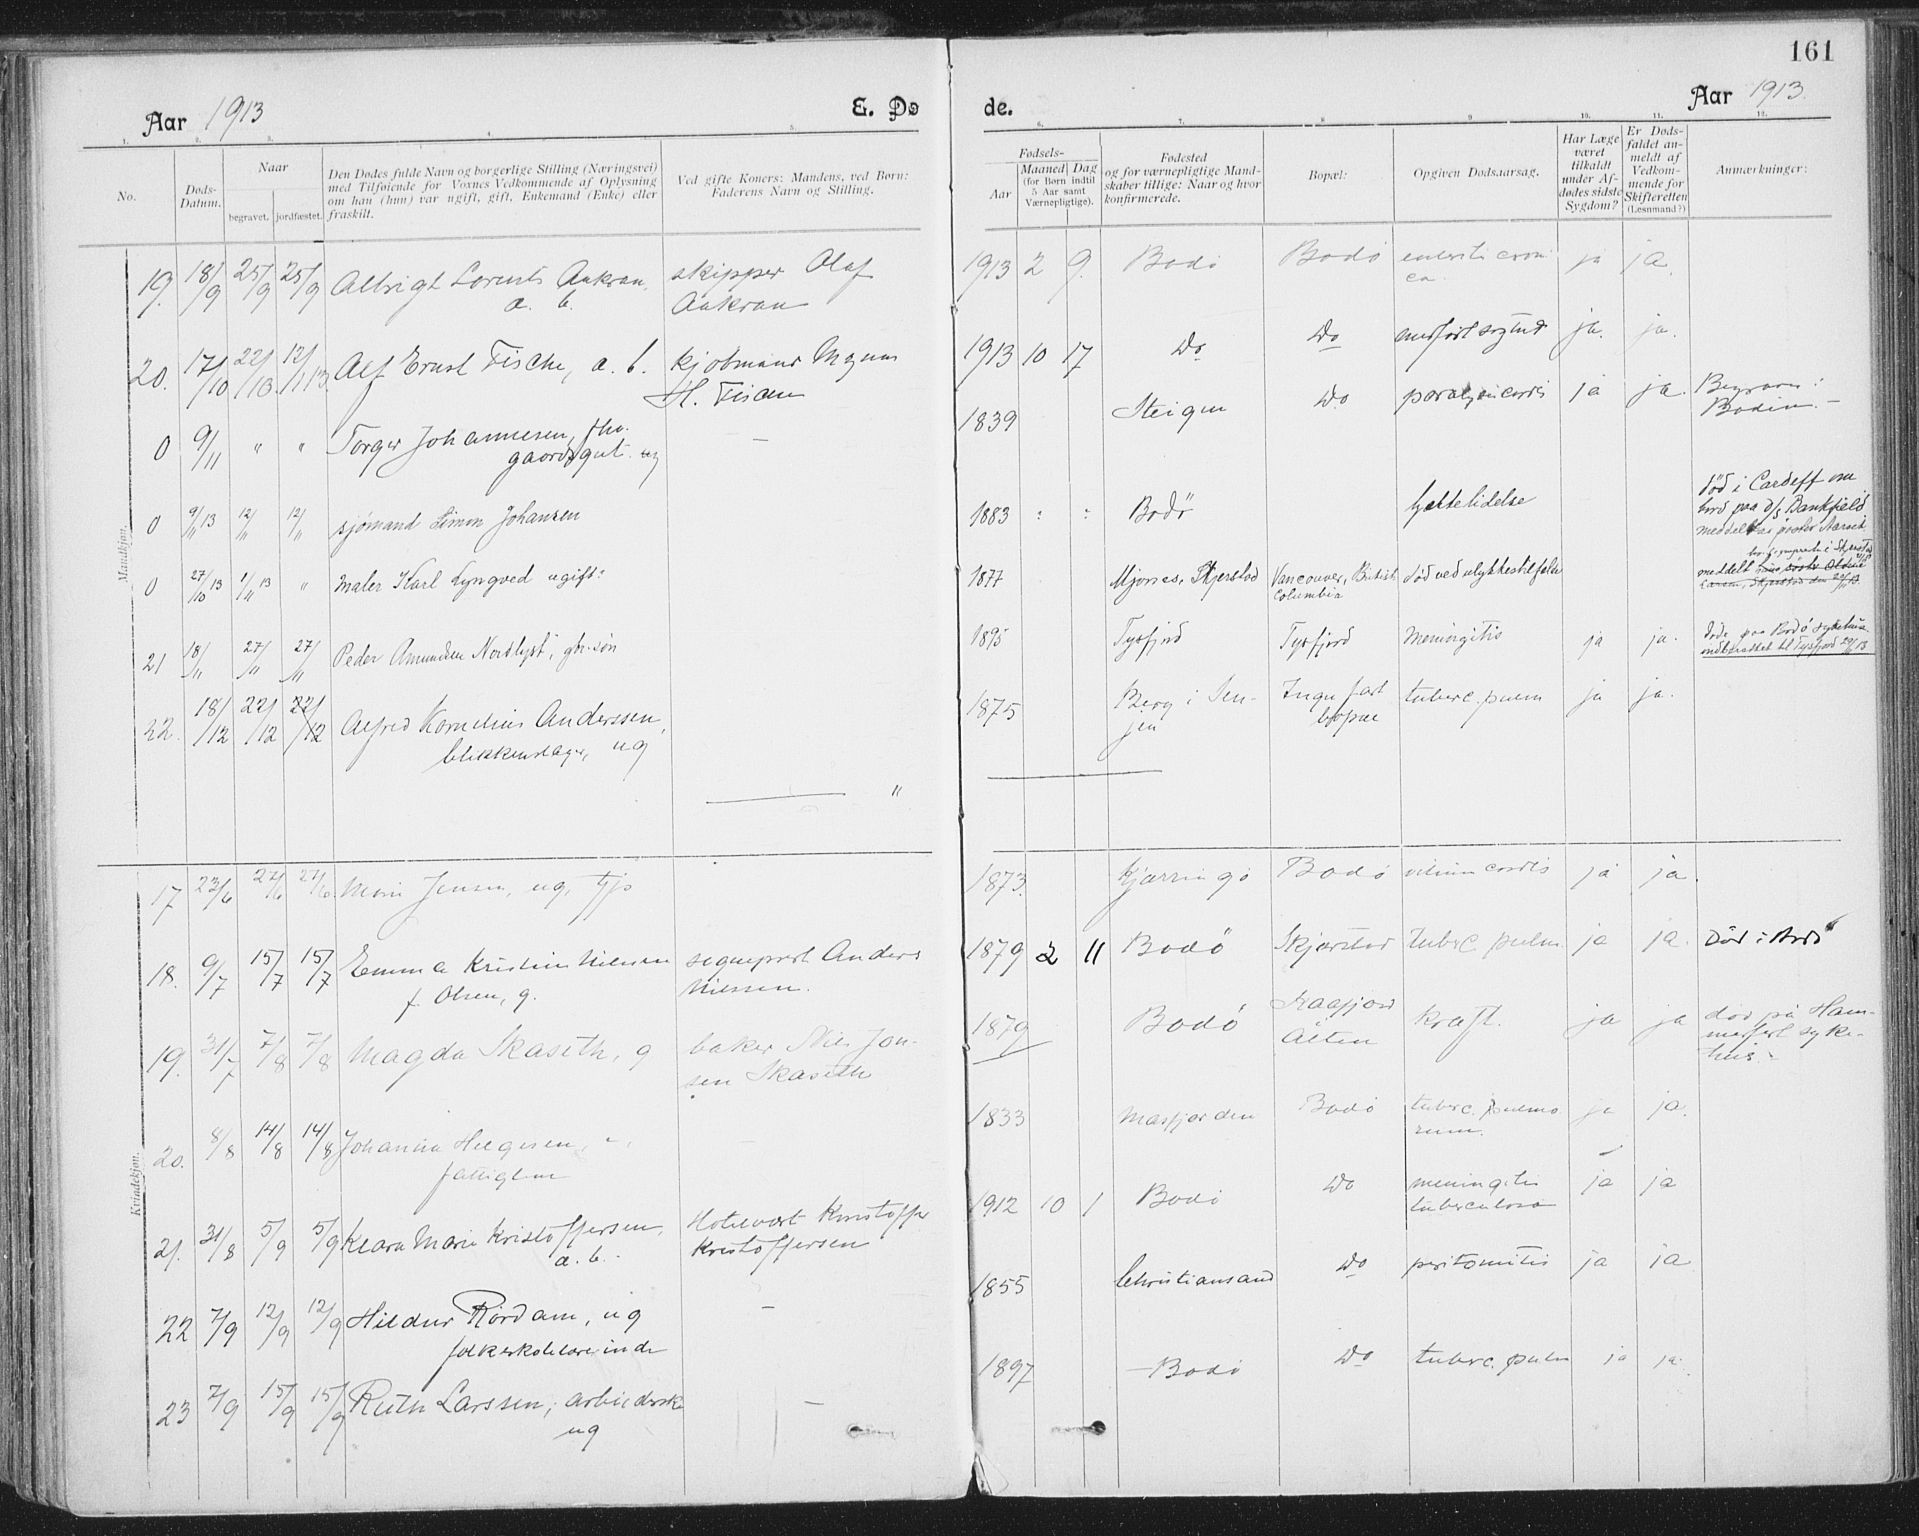 161
Aar 1913
E. Dø
de.
Aar 1913.
1. 2. 3. 4. 5. 6. 7. 8 9 10. 11. 12.
No.
Døds-
Datum.
Naar
begravet. jordfæstet.
Den Dødes fulde Navn og borgerlige Stilling (Næringsvei)
med Tilføiende for Voxnes Vedkommende af Oplysning
om han (hun) var ugift, gift, Enkemand (Enke) eller
fraskilt.
Ved gifte Koners: Mandens, ved Børn:
Faderens Navn og Stilling.
Fødsels-
Aar
Maaned Dag
(for Børn indtil
5 Aar samt
Værnepligtige).
Fødested
og for værnepligtige Mand-
skaber tillige: Naar og hvor
konfirmerede.
Bopæl:
Opgiven Dødsaarsag.
Har Læge
været
tilkaldt
under Af-
dødes sidste
Sygdom?
Er Døds-
faldet an-
meldt af
Vedkom-
mende for
Skifteretten
(Lesnmand?)
Anmærkninger:
Mandkjøn.
19. 18/9 25/9 25/9 Albrigt Lorents Aakran, skipper Olaf 1913 2 9. Bodø Bodø ja ja.
a. b. Aakran
20. 17/10 22/10 12/11 13. Alf Ernst Fische, a. b. kjøbmand Magnus 1913 10 17 Do Do ja. ja.
H.
0 9/11 " " Torger Johannesen, fhv. — 1839 Steigen Do paralysis cordis ja ja. Begraves i
gaardsgut. ug Bodin. —
0 9/11 13 12/11 12/11 sjømand Simon Johansen 1883 : : Bodø hjertelidelse død i Cardeff om
bord paa d/s Bankfield
0 27/10 13 1/11 13 " maler Karl Lyngved ugift: 1877 Mjønes, Skjerstad Vancouver, British død ved ulykkestilfælde meddelt
Columbia
21 18/11 27/11 27/11 Peder Amundsen Nordlyst, gbr.søn 1895 Tysfjord Tysfjord Meningitis ja ja. døde paa Bodø sykehus.
indberettet til Tysfjord 29/11 13
22. 18/12 22/12 22/12 Alfred Kornelius Anderssen, 1875 Berg i Sen- Ingen fast tuberc. pulm ja ja.
blikkenslager, ug jen bopæl
"
Kvindekjøn.
17 23/6 27/6 27/6 Marie Jensen, ug, tjs 1873. Kjærringø Bodø vitium cordis ja ja.
18. 9/7 15/7 15/7 Emma Kristine Nielsen sogneprest Anders 1879 2 11 Bodø Skjerstad tuberc. pulm ja ja. Død i Bodø
f. Olsen, g. Nielsen.
19. 31/7 7/8 7/8 Magda Skaseth, g baker Nils Jon- 1879 Bodø Kaafjord kræft. ja ja død på Ham-
sen Skaseth Alten merfest syke-
hus. -
20. 8/8 14/8 14/8 Johanna Helgesen, — 1833 Masfjorden Bodø tuberc. pulmo ja ja.
fattiglem rum.
21. 31/8 5/9 5/9 Klara Marie Kristoffersen, Hotelvært Kristoffer 1912 10 1 Bodø Do meningitis ja ja
a. b. - Kristoffersen tuberculosa
22 7/9 12/9 12/9 Hildur Rørdam, ug — 1855 Christiansand Do peritonitis ja ja
folkeskolelærerinde
23 7/9 15/9 15/9 Ruth Larssen, arbeiderske — 1897 — Bodø Do tuberc. pulm ja ja.
ug